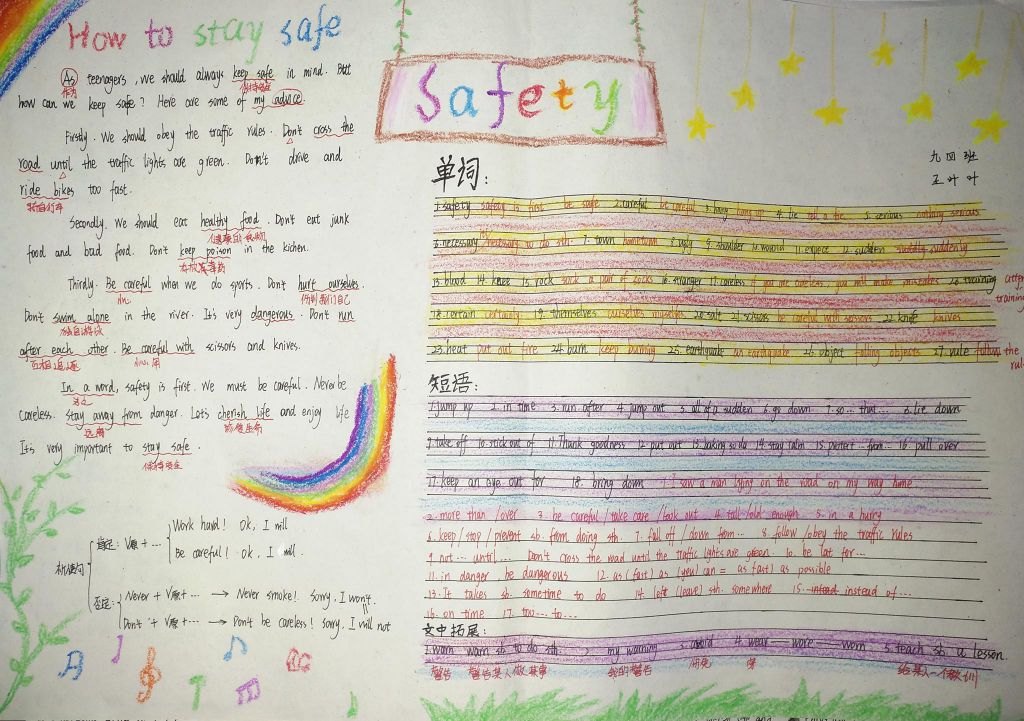 How to stay safe
As teenagers, we should always keep safe in mind. But
作为 保持安全
how can we keep safe? Here are some of my advice.
Firstly. We should obey the traffic rules. Don't cross the
road until the traffic lights are green. Don't drive and
ride bikes too fast.
骑自行车
Secondly. We should eat healthy food. Don't eat junk
food and bad food. Don't keep poison in the kichen.
Thirdly. Be careful when we do sports. Don't hurt ourselves.
小心 伤到我们自己
Don't swim alone in the river. It's very dangerous. Don't run
独自游泳
after each other. Be careful with scissors and knives.
互相追逐
In a word, safety is first. We must be careful. Never be
总之
careless. Stay away from danger. Let's cherish life and enjoy life
远离 珍惜生命
It's very important to stay safe.
保持安全
祈使句
肯定: V原 + ...
Work hard! Ok, I will
Be careful! Ok. I will.
否定:
Never + V原 + ... → Never smoke! Sorry. I won't.
Don't + V原 + ... → Don't be careless! Sorry. I will not
Safety
九四班
王叶叶
单词:
1.safety safety is first be safe 2.careful be careful 3.hang hang up 4.lie tell a lie 5.serious nothing serious
6.necessary necessary to do sth. 7.town hometown 8.ugly 9.shoulder 10.would 11.expect 12.sudden suddenly
13.blood 14.knee 15.rock sock a pair of socks 16.stranger 17.careless if you are careless, you will make mistakes 20.training after training
18.certain certainly 19.themselves ourselves 20.salt 21.scissors be careful with scissors 22.knife knives
23.heat put out fire 24.burn keep burning 25.earthquake an earthquake 26.object falling objects 27.rule follow the rul
短语:
1.jump up 2.in time 3.run after 4.jump out 5.all of a sudden 6.go down 7.so... that... 8.lie down
9.take off 10.stick out of 11.Thank goodness 12.put out 13.baking soda 14.stay calm 15.protect... from... 16.pull over
17.keep an eye out for 18.bring down 1.I saw a man lying on the road on my way home
2.more than / over 3.be careful / take care / look out 4.tall / old enough 5.in a hurry
6.keep / stop / prevent sb. from doing sth. 7.fall off / down from... 8.follow / obey the traffic rules
9.not... until... Don't cross the road until the traffic lights are green. 10.be late for...
11.in danger, be dangerous 12.as (fast) as (you) can = as fast) as possible
13.It takes sb. sometime to do 14.left (leave) sth. somewhere 15.instead of...
16.on time 17.too... to...
文中拓展:
1.warn warn sb to do sth. 2.my warning 3.avoid 4.wear — wore — worn 5.teach sb. a lesson.
警告 警告某人做某事 我的警告 避免 穿 给某人一个教训